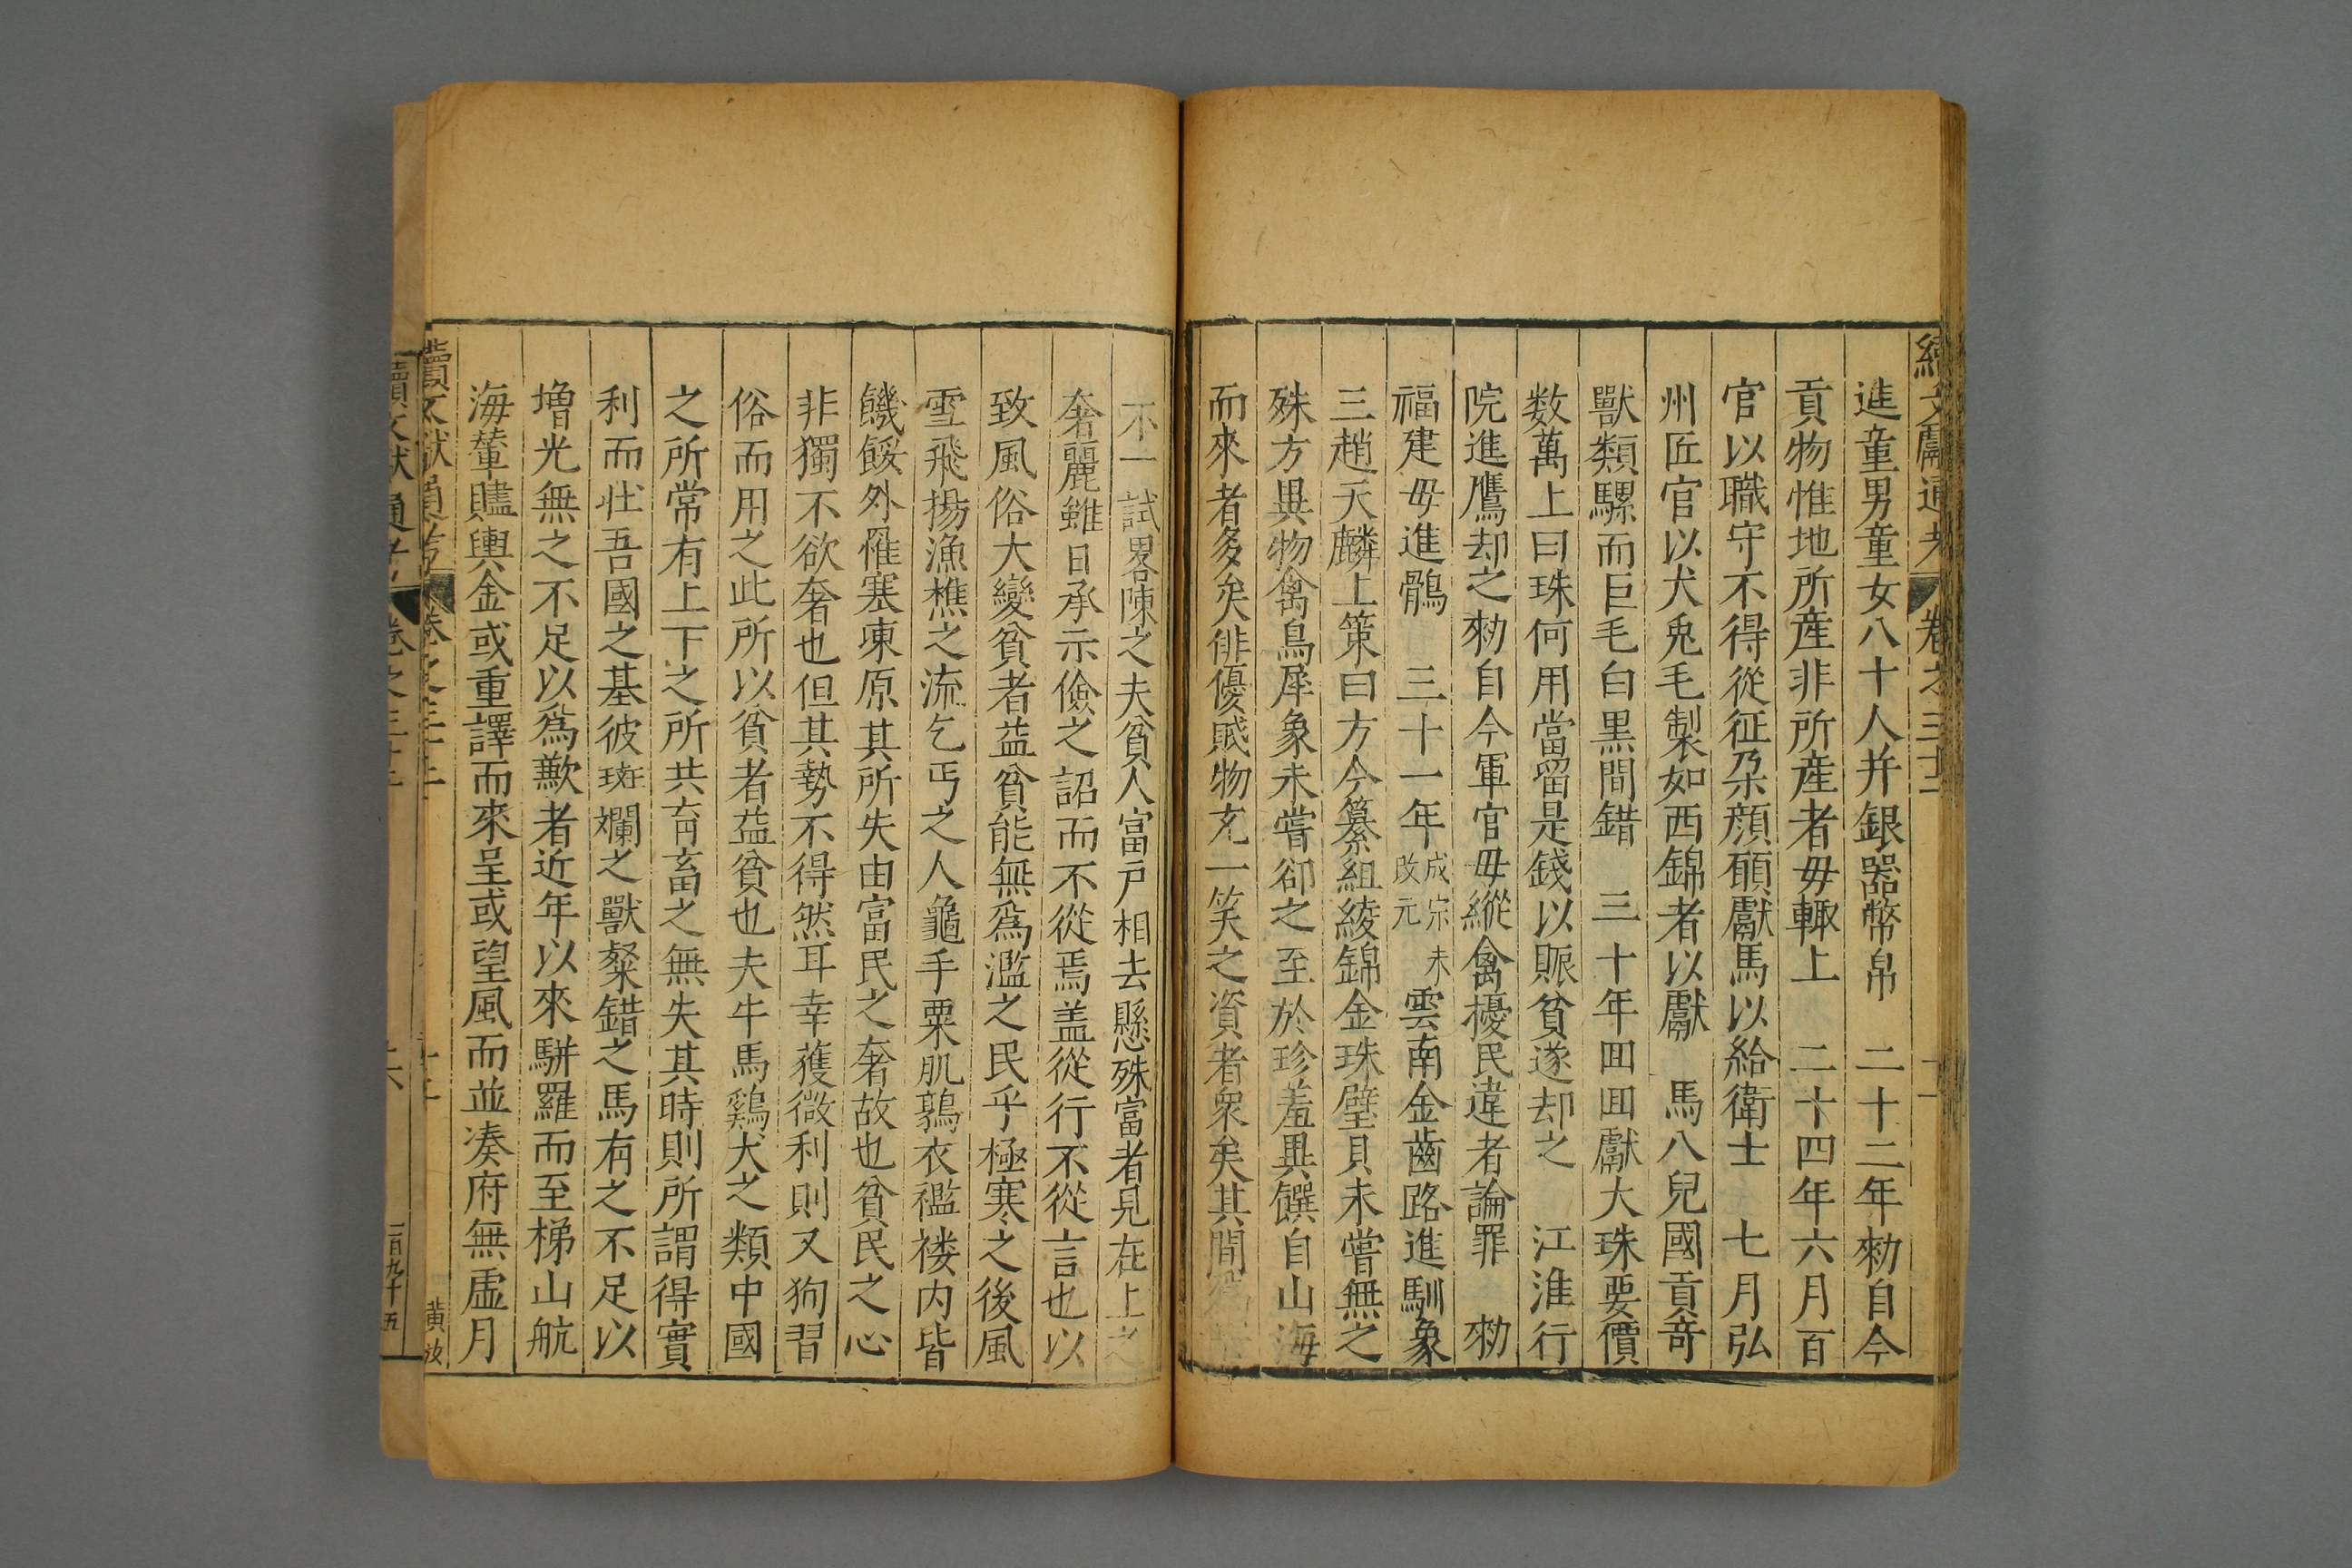 續文獻通考 卷之三十二 十二
進童男童女八十人并銀器幣帛 二十二年勑自今
貢物惟地所産非所産者毋輙上 二十四年六月百
官以職守不得從征朶顔願獻馬以給衛士 七月弘
州匠官以犬兎毛製如西錦者以獻 馬八兒國貢奇
獸類騾而巨毛白黒間錯 三十年囬囬獻大珠要價
数萬上曰珠何用當留是錢以賑貧遂却之 江淮行
院進鷹却之勑自今軍官毋縱禽擾民違者論罪 勑
福建毋進鶻 三十一年成宗未改元雲南金齒路進馴象
三趙天麟上策曰方今纂組綾錦金珠璧貝未嘗無之
殊方異物禽鳥犀象未嘗卻之至於珍羞異饌自山海
而來者多矣俳優賤物充一笑之資者衆矣其間
不一試畧陳之夫貧人富戸相去懸殊富者見在上之
奢麗雖日承示儉之詔而不從焉盖從行不從言也以
致風俗大變貧者益貧能無爲濫之民乎極寒之後風
雪飛揚漁樵之流乞丐之人龜手粟肌鶉衣襤褸内皆
饑餒外罹寒凍原其所失由富民之奢故也貧民之心
非獨不欲奢也但其勢不得然耳幸獲微利則又狥習
俗而用之此所以貧者益貧也夫牛馬鷄犬之類中國
之所常有上下之所共育畜之無失其時則所謂得實
利而壮吾國之基彼斑斕之獸粲錯之馬有之不足以
増光無之不足以爲歉者近年以來駢羅而至梯山航
海輦贐輿金或重譯而來呈或望風而並凑府無虚月
續文獻通考 卷之三十二 十二 黄汝
續文獻通考 卷之三十二 六 二百九十五